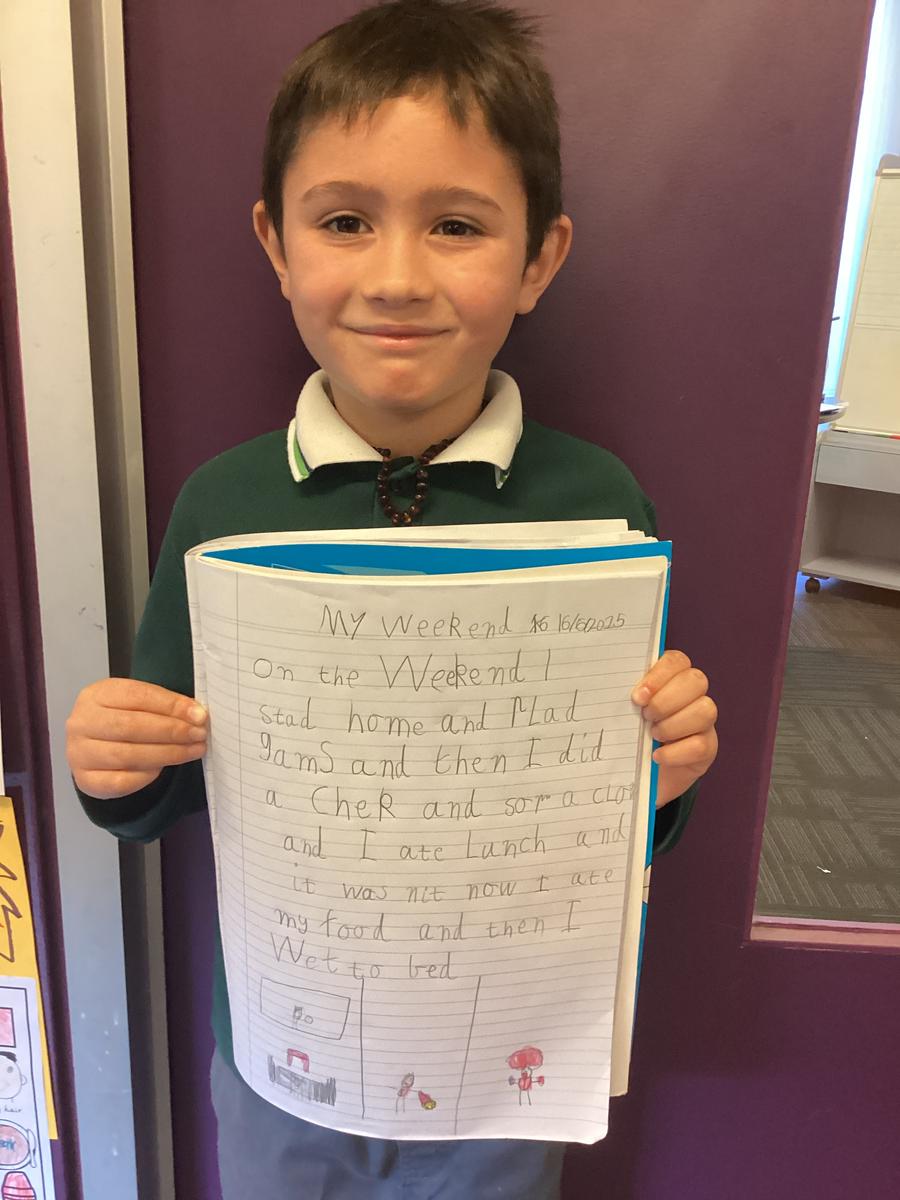 My Weekend 16/6/2025
On the Weekend I
stad home and Plad
gams and then I did
a Chek and som a
and I ate Lunch and
it was nit now I ate
my food and then I
Wet to bed
hair